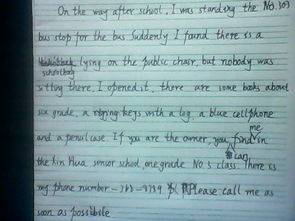 On the way after school, I was standing the No.307
bus stop for the bus Suddenly I found there is a
schoolbag lying on the public chair, but nobody was
sitting there, I opened it, there are some books about
six grade, a string keys with a tag, a blue cellphone
and a pencil case. If you are the owner, you can find me in
the Xin Hua senior school, one grade No.5 class. There is
my phone number - Please call me as
soon as possible